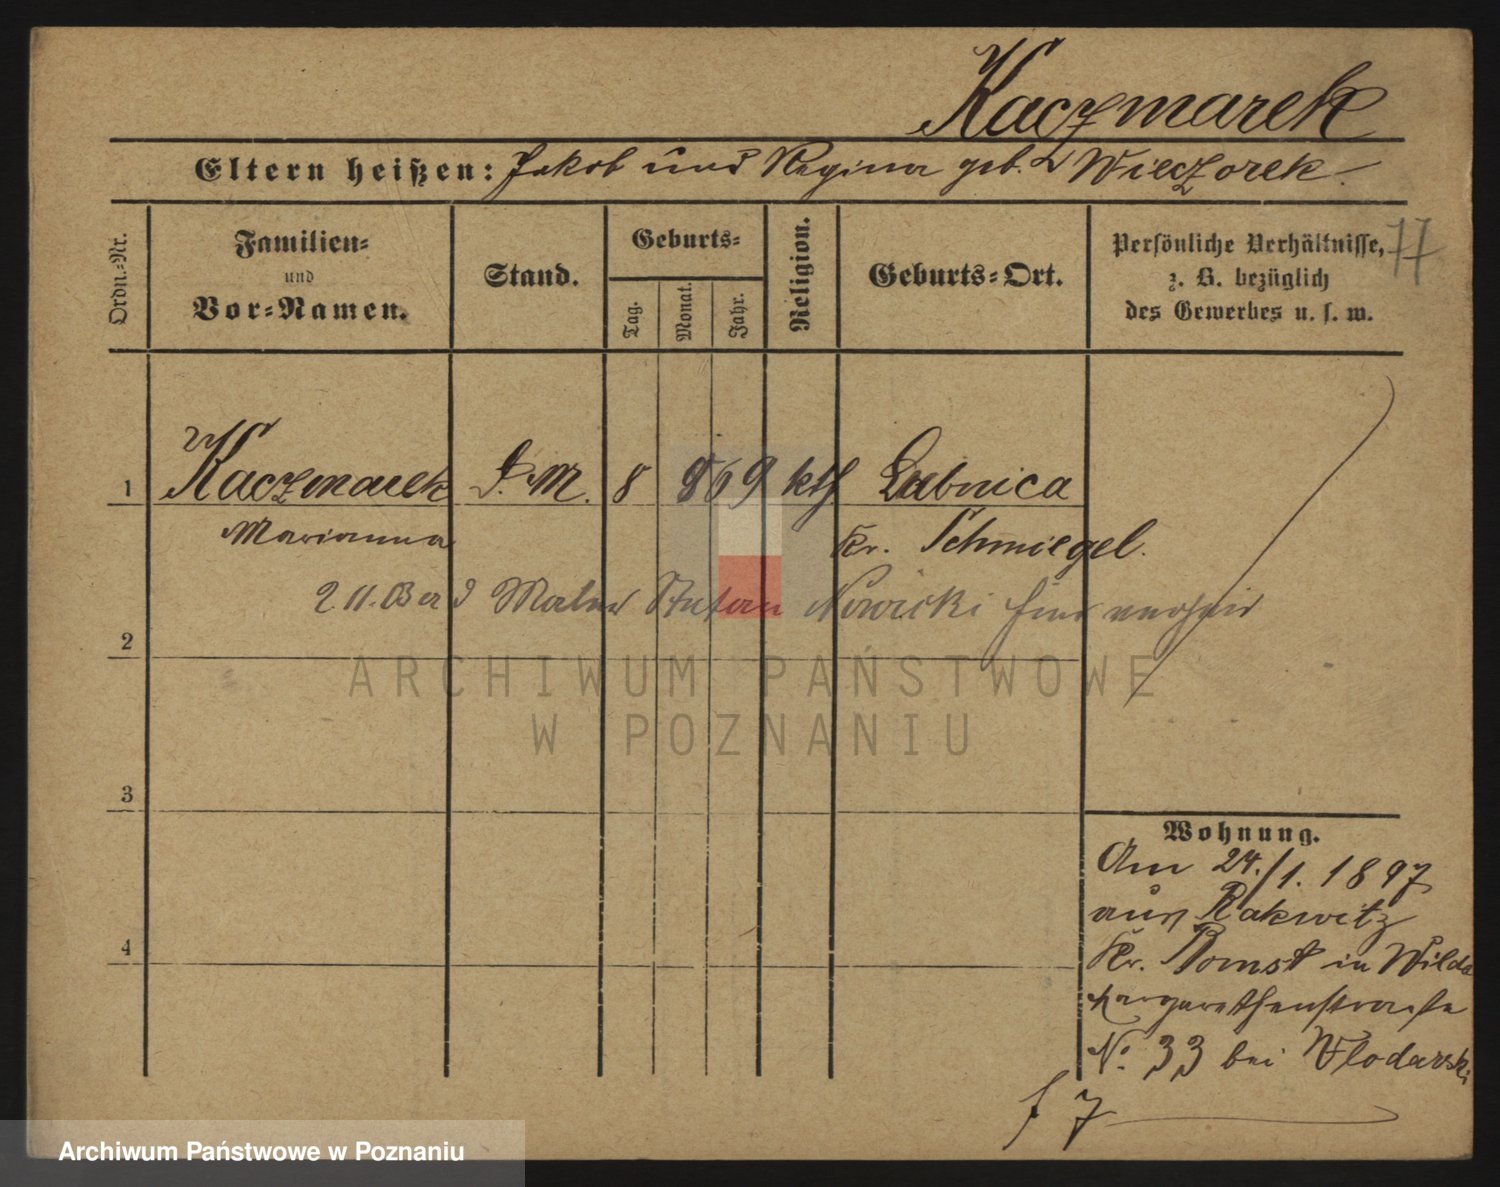 Kaczmarek
Eltern heißen: Jakob und Regina geb. Wieczorek.
77
Ordn.-Nr.
Familien-
und
Vor-Namen.
Stand.
Geburts-
Tag.
Monat.
Jahr.
Religion.
Geburts-Ort.
Persönliche Verhältnisse,
z. B. bezüglich
des Gewerbes u. s. w.
1 Kaczmarek D. M. 8 869 kth Lubnica
Marianna Kr. Schmiegel.
2.11.03 Maler Stefan Nowicki hier
2
ARCHIWUM PAŃSTWOWE
W POZNANIU
3
Wohnung.
Am 24./1. 1897
aus Rakwitz
4
Kr. Bomst in Wilda
Margarethenstraße
No. 33 bei Wlodarski
f 7
Archiwum Państwowe w Poznaniu